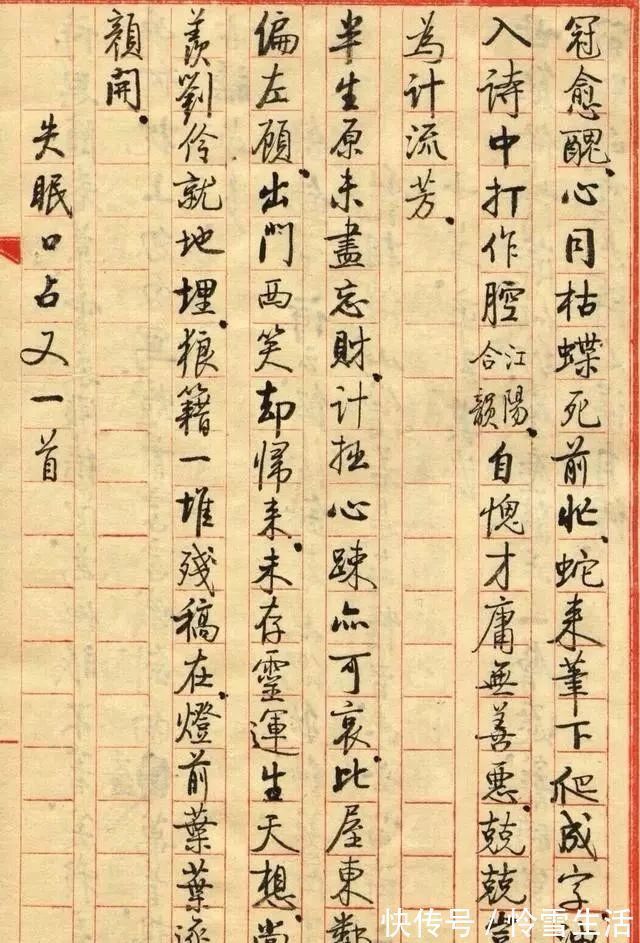 冠愈醜、心同枯蝶死前忙、蛇来筆下爬成字、
入詩中打作腔江陽合韻、自愧才庸無善惡、兢兢
為計流芳、
半生原未盡忘財、計拙心疎亦可哀、比屋東鄰
偏左顧、出門西笑却帰来、未存靈運生天想、尚
羨劉伶就地埋、狼籍一堆殘稿在、燈前葉葉逐
顏開、
失眠口占又一首
快传号/怜雪生活